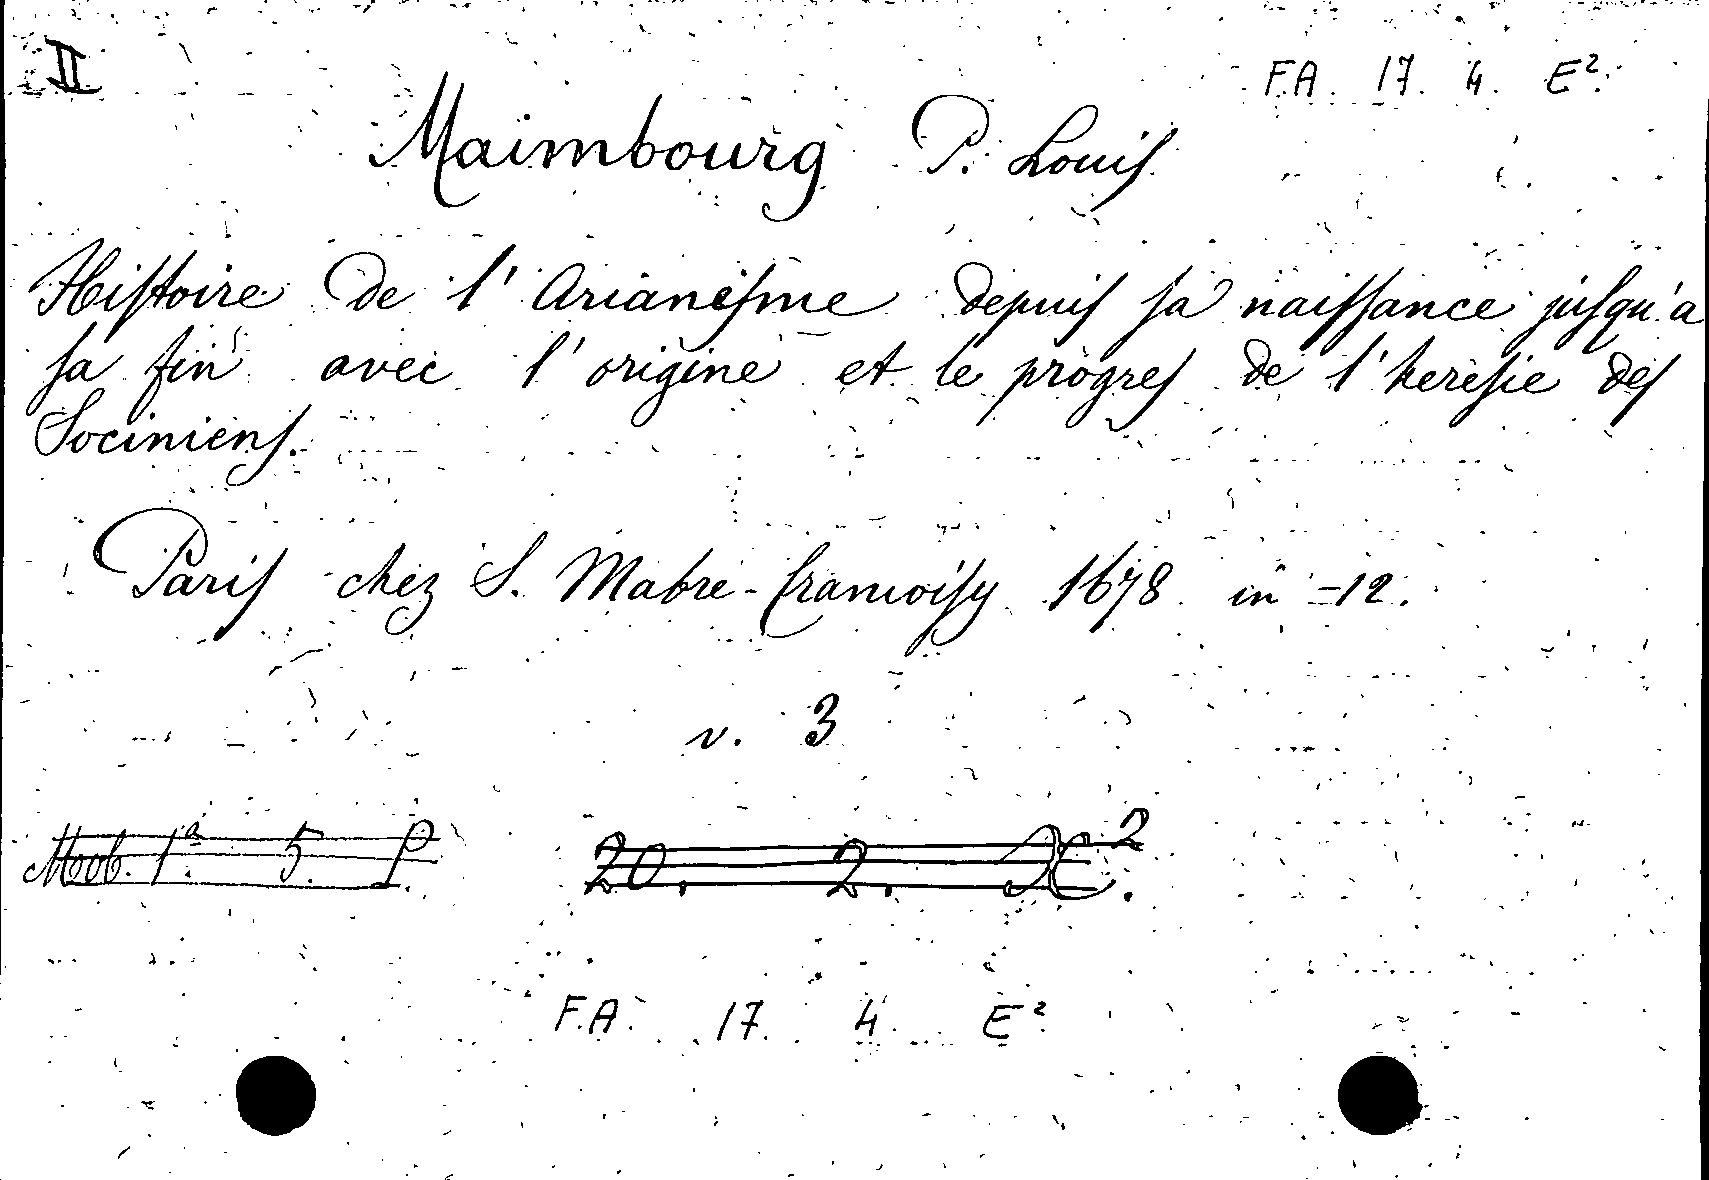 II
F.A. 17. 4. E².
Maimbourg P. Louis
Histoire de l'Arianesme depuis sa naissance jusqu'a
sa fin avec l'origine et le progres de l'heresie des
Sociniens.
Paris chez S. Mabre-Cramoisy 1678 in-12.
v. 3
Mob. 1ª. 5. P.
20. 2. E².
F.A. 17. 4. E²